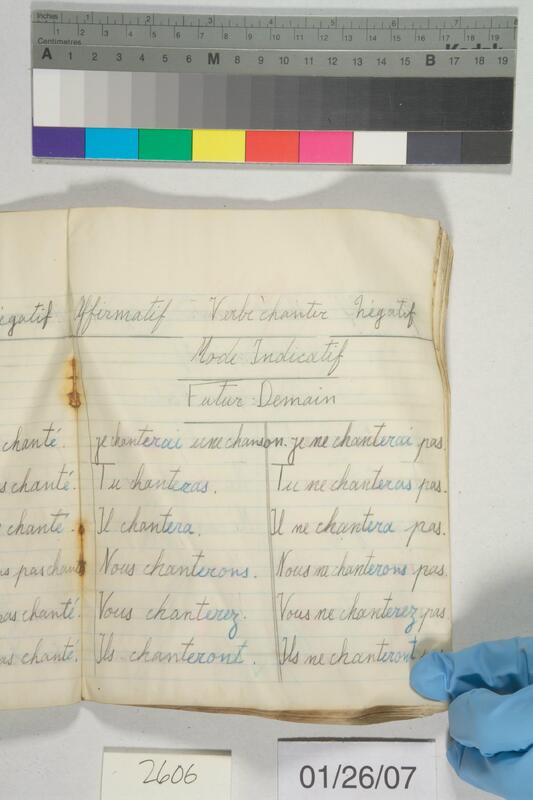 Inches 1 2 3 4 5 6 7 8
Centimetres 1 2 3 4 5 6 7 8 9 10 11 12 13 14 15 16 17 18 19
Kodak
A 1 2 3 4 5 6 M 8 9 10 11 12 13 14 15 B 17 18 19
égatif Affirmatif Verbe chanter Négatif
Mode Indicatif
Futur : Demain
chanté. je chanterai une chanson. je ne chanterai pas.
s chanté. Tu chanteras. Tu ne chanteras pas.
chanté. Il chantera. Il ne chantera pas.
as pas chanté Nous chanterons. Nous ne chanterons pas.
pas chanté. Vous chanterez. Vous ne chanterez pas.
as chanté. Ils chanteront. Ils ne chanteront
2606
01/26/07